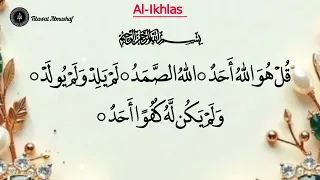 Tilawat Almushaf
Al-Ikhlas
بِسْمِ اللَّهِ الرَّحْمَٰنِ الرَّحِيمِ
قُلْ هُوَ اللَّهُ أَحَدٌ ۝ اللَّهُ الصَّمَدُ ۝ لَمْ يَلِدْ وَلَمْ يُولَدْ ۝
وَلَمْ يَكُن لَّهُ كُفُوًا أَحَدٌ ۝